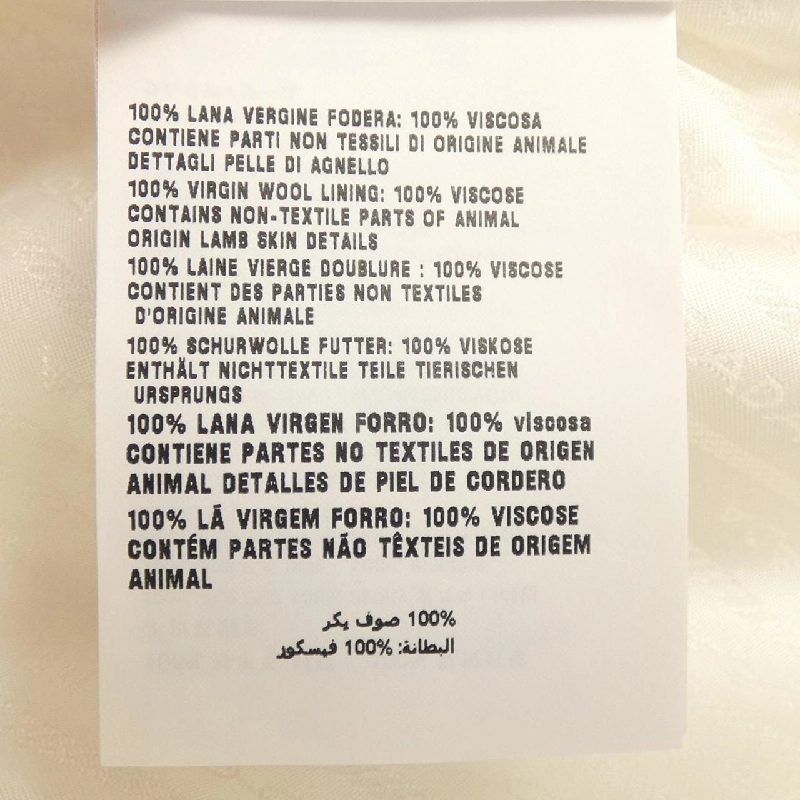 100% LANA VERGINE FODERA: 100% VISCOSA
CONTIENE PARTI NON TESSILI DI ORIGINE ANIMALE
DETTAGLI PELLE DI AGNELLO
100% VIRGIN WOOL LINING: 100% VISCOSE
CONTAINS NON-TEXTILE PARTS OF ANIMAL
ORIGIN LAMB SKIN DETAILS
100% LAINE VIERGE DOUBLURE : 100% VISCOSE
CONTIENT DES PARTIES NON TEXTILES
D'ORIGINE ANIMALE
100% SCHURWOLLE FUTTER: 100% VISKOSE
ENTHÄLT NICHTTEXTILE TEILE TIERISCHEN
URSPRUNGS
100% LANA VIRGEN FORRO: 100% viscosa
CONTIENE PARTES NO TEXTILES DE ORIGEN
ANIMAL DETALLES DE PIEL DE CORDERO
100% LÃ VIRGEM FORRO: 100% VISCOSE
CONTÉM PARTES NÃO TÊXTEIS DE ORIGEM
ANIMAL
100% صوف يكر
البطانة: 100% فيسكور